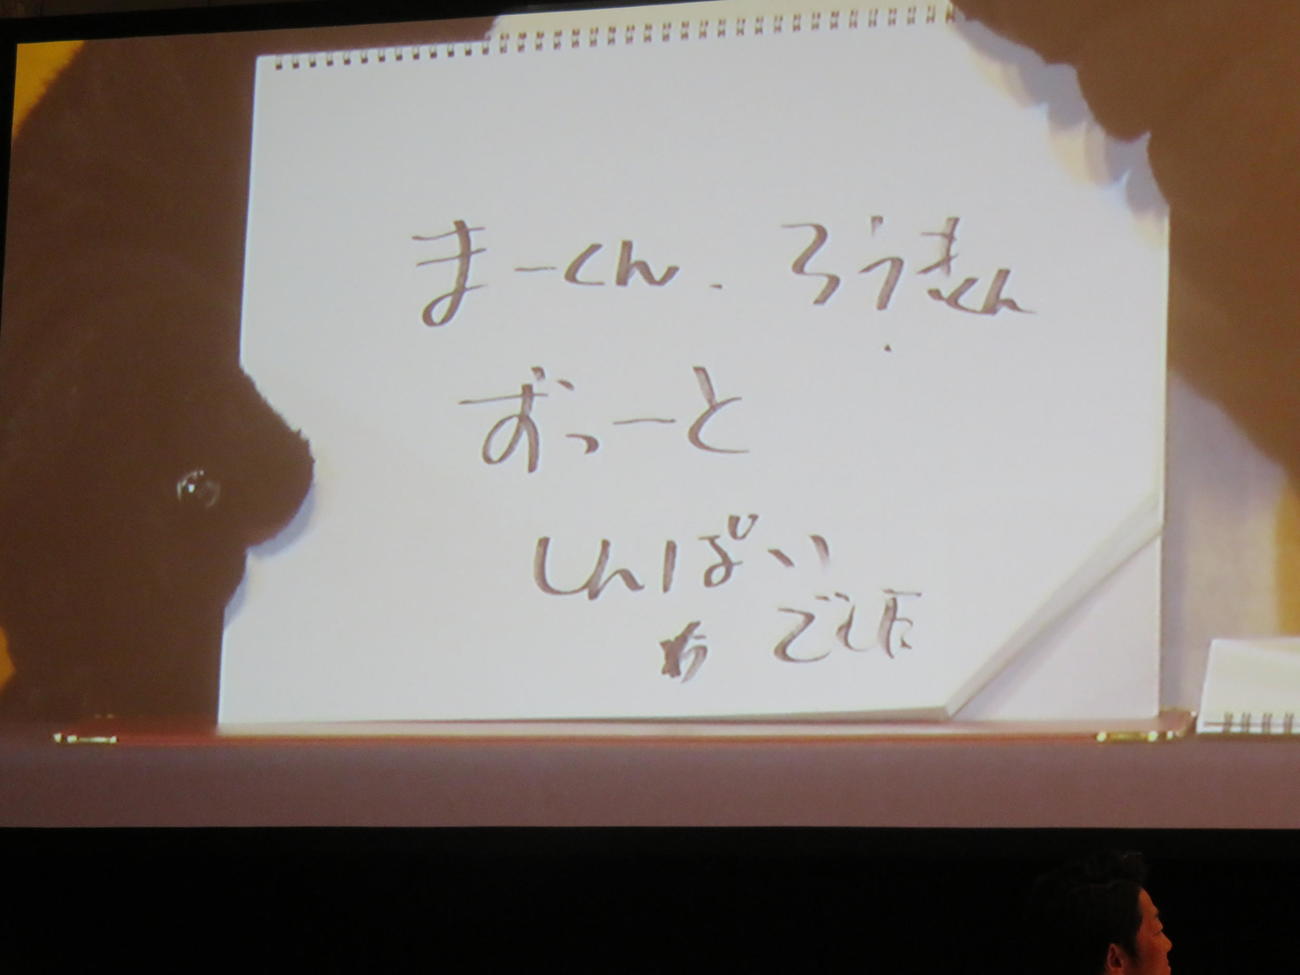 まーくん、ろうきくん
ずっーと
しんぱい
でした